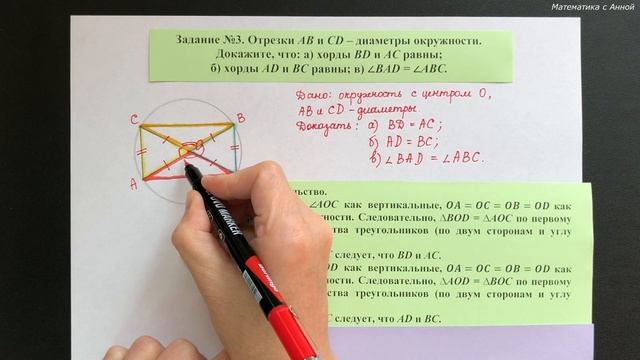 Математика с Анной
Задание №3. Отрезки AB и CD – диаметры окружности.
Докажите, что: а) хорды BD и AC равны;
б) хорды AD и BC равны; в) ∠BAD = ∠ABC.
Дано: окружность с центром O,
AB и CD – диаметры.
Доказать: а) BD = AC;
б) AD = BC;
в) ∠BAD = ∠ABC.
C
B
A
∠AOC как вертикальные, OA = OC = OB = OD как
Следовательно, △BOD = △AOC по первому
треугольников (по двум сторонам и углу
следует, что BD и AC.
как вертикальные, OA = OC = OB = OD как
Следовательно, △AOD = △BOC по первому
треугольников (по двум сторонам и углу
следует, что AD и BC.